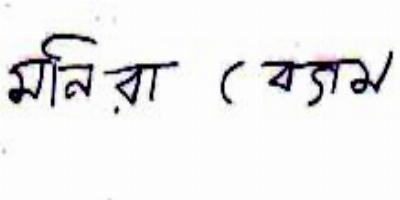 মনিরা বেগম